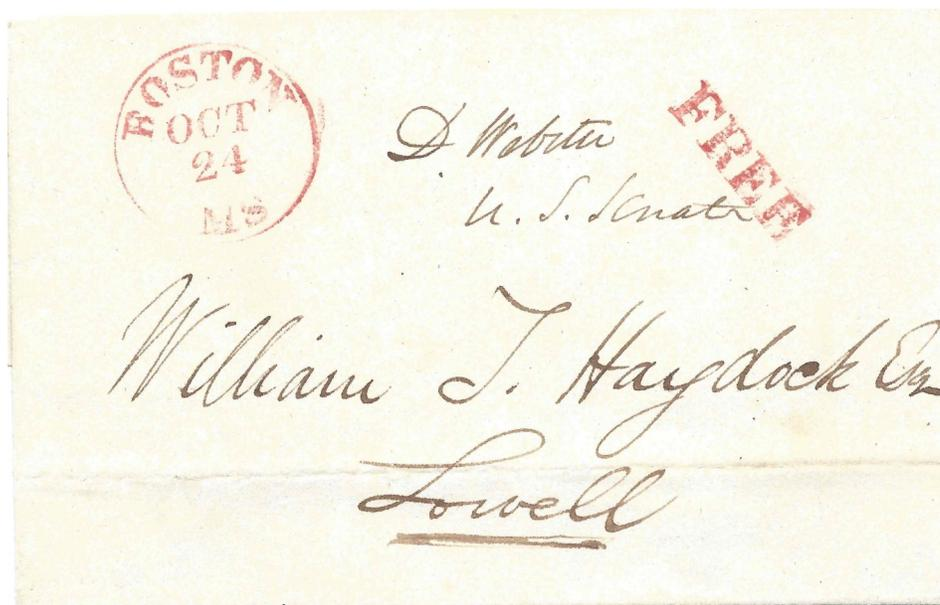 BOSTON
OCT
24
MS
D. Webster
U. S. Senate
FREE
William T. Haydock Esq
Lowell